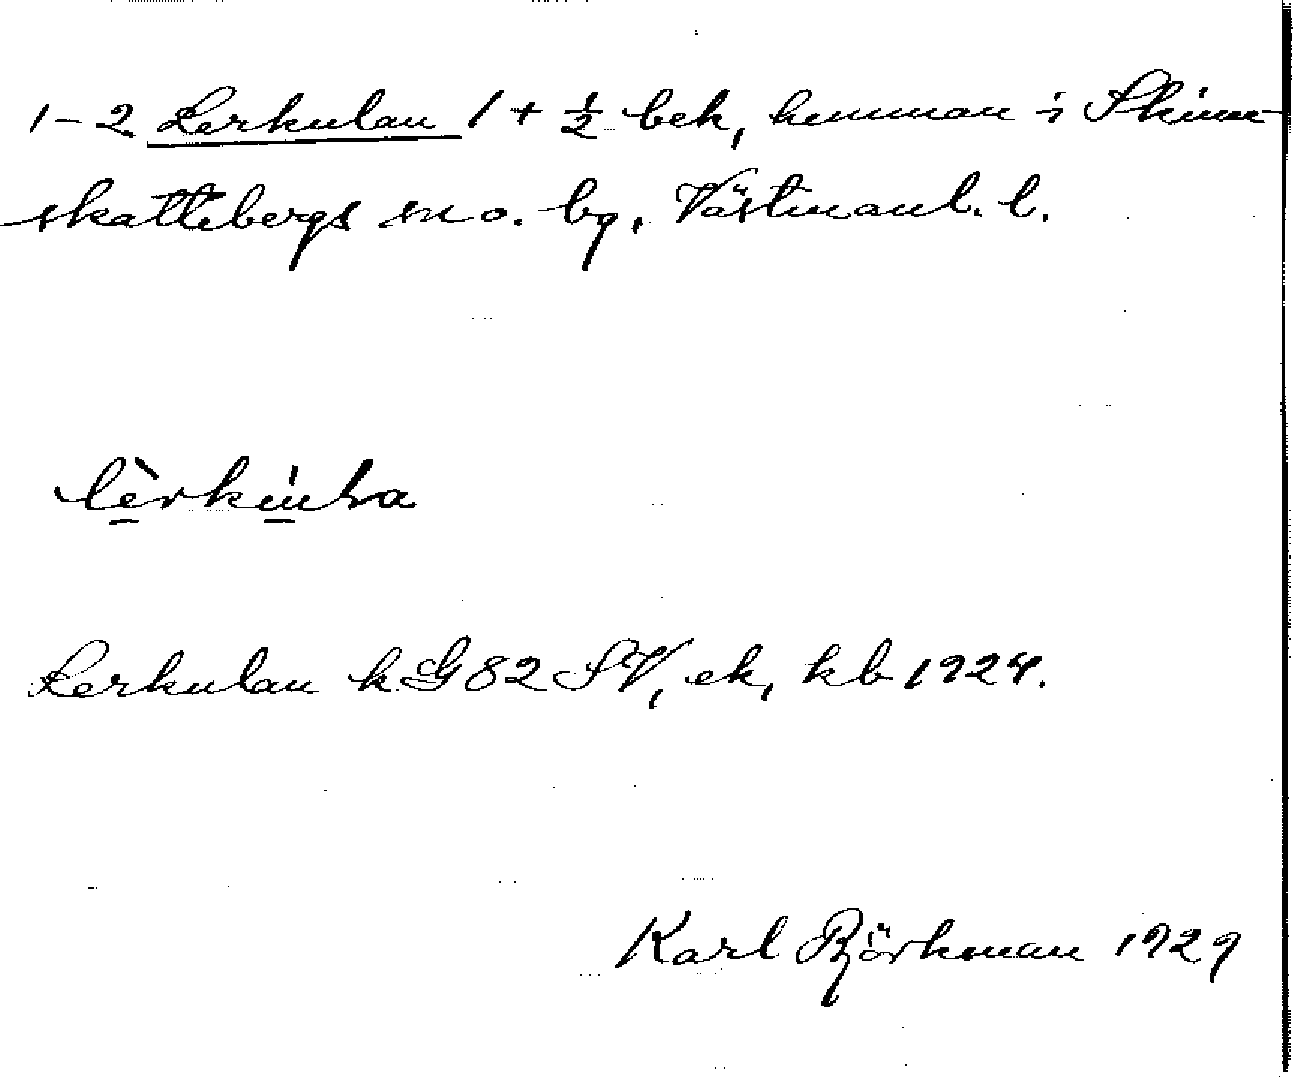 1–2 Lerkulan 1 + ½ bek, hemman i Skinn-
skattebergs sn o. bg, Västmanl. l.
lèrkùla
Lerkulan k G 82 SV, ek, kb 1924.
Karl Björkman 1929